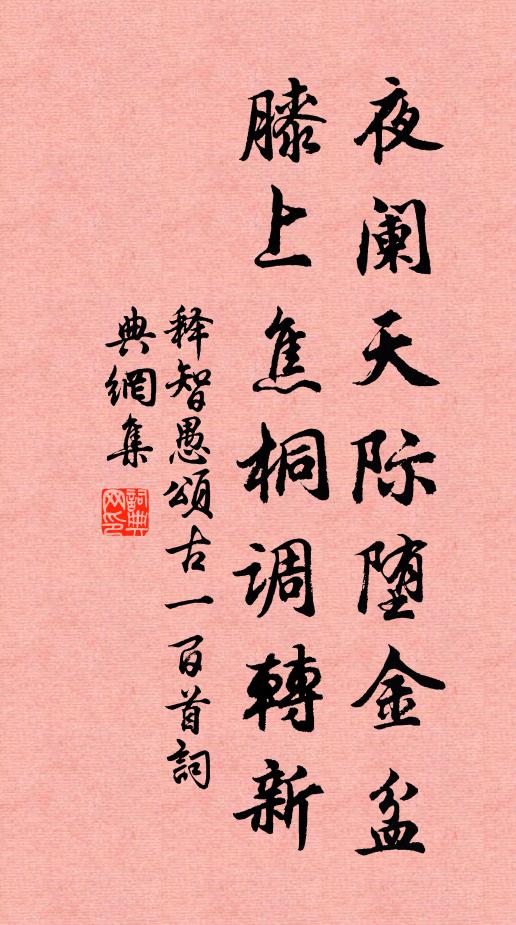 夜阑天际堕金盆
膝上焦桐调轉新
释智愚颂古一百首詞
典網集
詞典網印